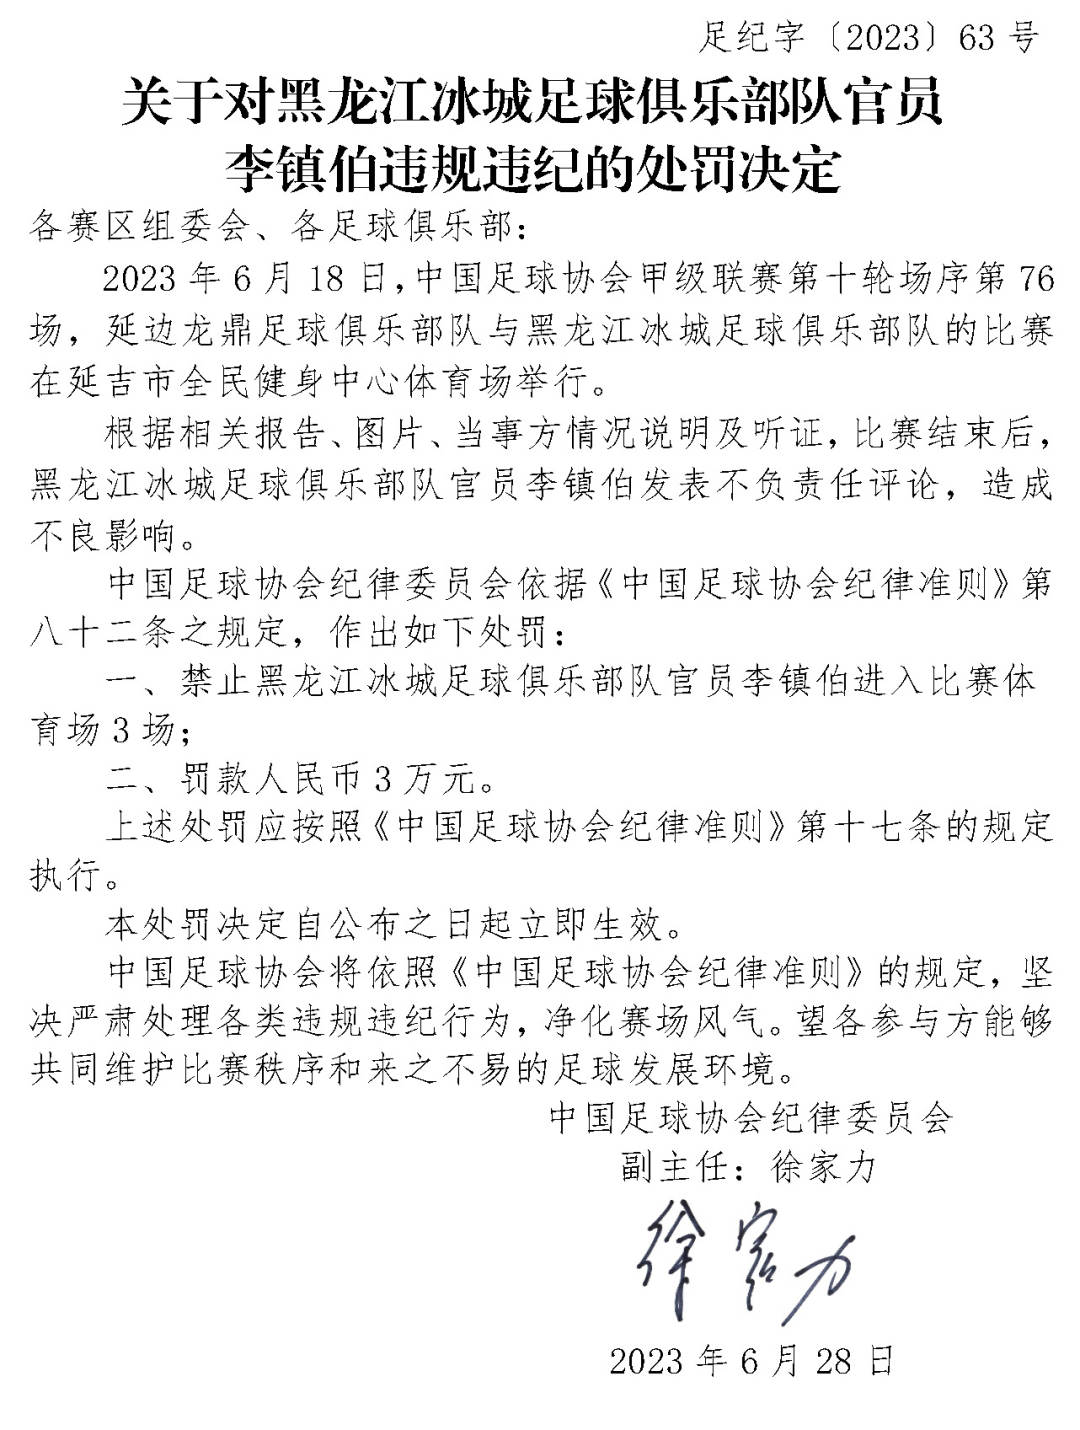 足纪字〔2023〕63 号
关于对黑龙江冰城足球俱乐部队官员
李镇伯违规违纪的处罚决定
各赛区组委会、各足球俱乐部：
2023 年 6 月 18 日，中国足球协会甲级联赛第十轮场序第 76
场，延边龙鼎足球俱乐部队与黑龙江冰城足球俱乐部队的比赛
在延吉市全民健身中心体育场举行。
根据相关报告、图片、当事方情况说明及听证，比赛结束后，
黑龙江冰城足球俱乐部队官员李镇伯发表不负责任评论，造成
不良影响。
中国足球协会纪律委员会依据《中国足球协会纪律准则》第
八十二条之规定，作出如下处罚：
一、禁止黑龙江冰城足球俱乐部队官员李镇伯进入比赛体
育场 3 场；
二、罚款人民币 3 万元。
上述处罚应按照《中国足球协会纪律准则》第十七条的规定
执行。
本处罚决定自公布之日起立即生效。
中国足球协会将依照《中国足球协会纪律准则》的规定，坚
决严肃处理各类违规违纪行为，净化赛场风气。望各参与方能够
共同维护比赛秩序和来之不易的足球发展环境。
中国足球协会纪律委员会
副主任：徐家力
徐家力
2023 年 6 月 28 日